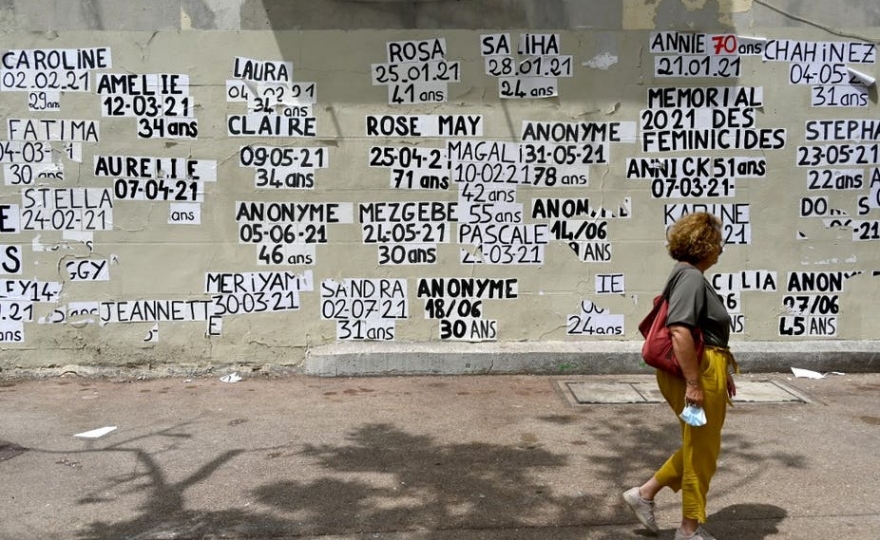 CAROLINE
02.02.21
29 ans
AMELIE
12-03-21
34 ans
LAURA
04-02-21
34 ans
ROSA
25.01.21
41 ans
SALIHA
28.01.21
24 ans
ANNIE 70 ans
21.01.21
CHAHINEZ
04-05-
31 ans
MEMORIAL
2021 DES
FEMINICIDES
FATIMA
30 ans
CLAIRE
09-05-21
34 ans
ROSE MAY
25-04-2
71 ans
MAGALI
10-0221
42 ans
55 ans
ANONYME
31-05-21
78 ans
STEPHA
23-05-21
22 ANS
AURELIE
07-04-21
ans
ANNICK 51 ans
07-03-21
STELLA
24-02-21
ANONYME
05-06-21
46 ans
MEZGEBE
24-05-21
30 ans
PASCALE
21-03-21
14/06
ANS
KARINE
21
GGY
MERIYAM
30-03-21
JEANNETT
SANDRA
02-07-21
31 ans
ANONYME
18/06
30 ANS
IE
24 ans
CILIA
ans
ANONY
27/06
45 ANS